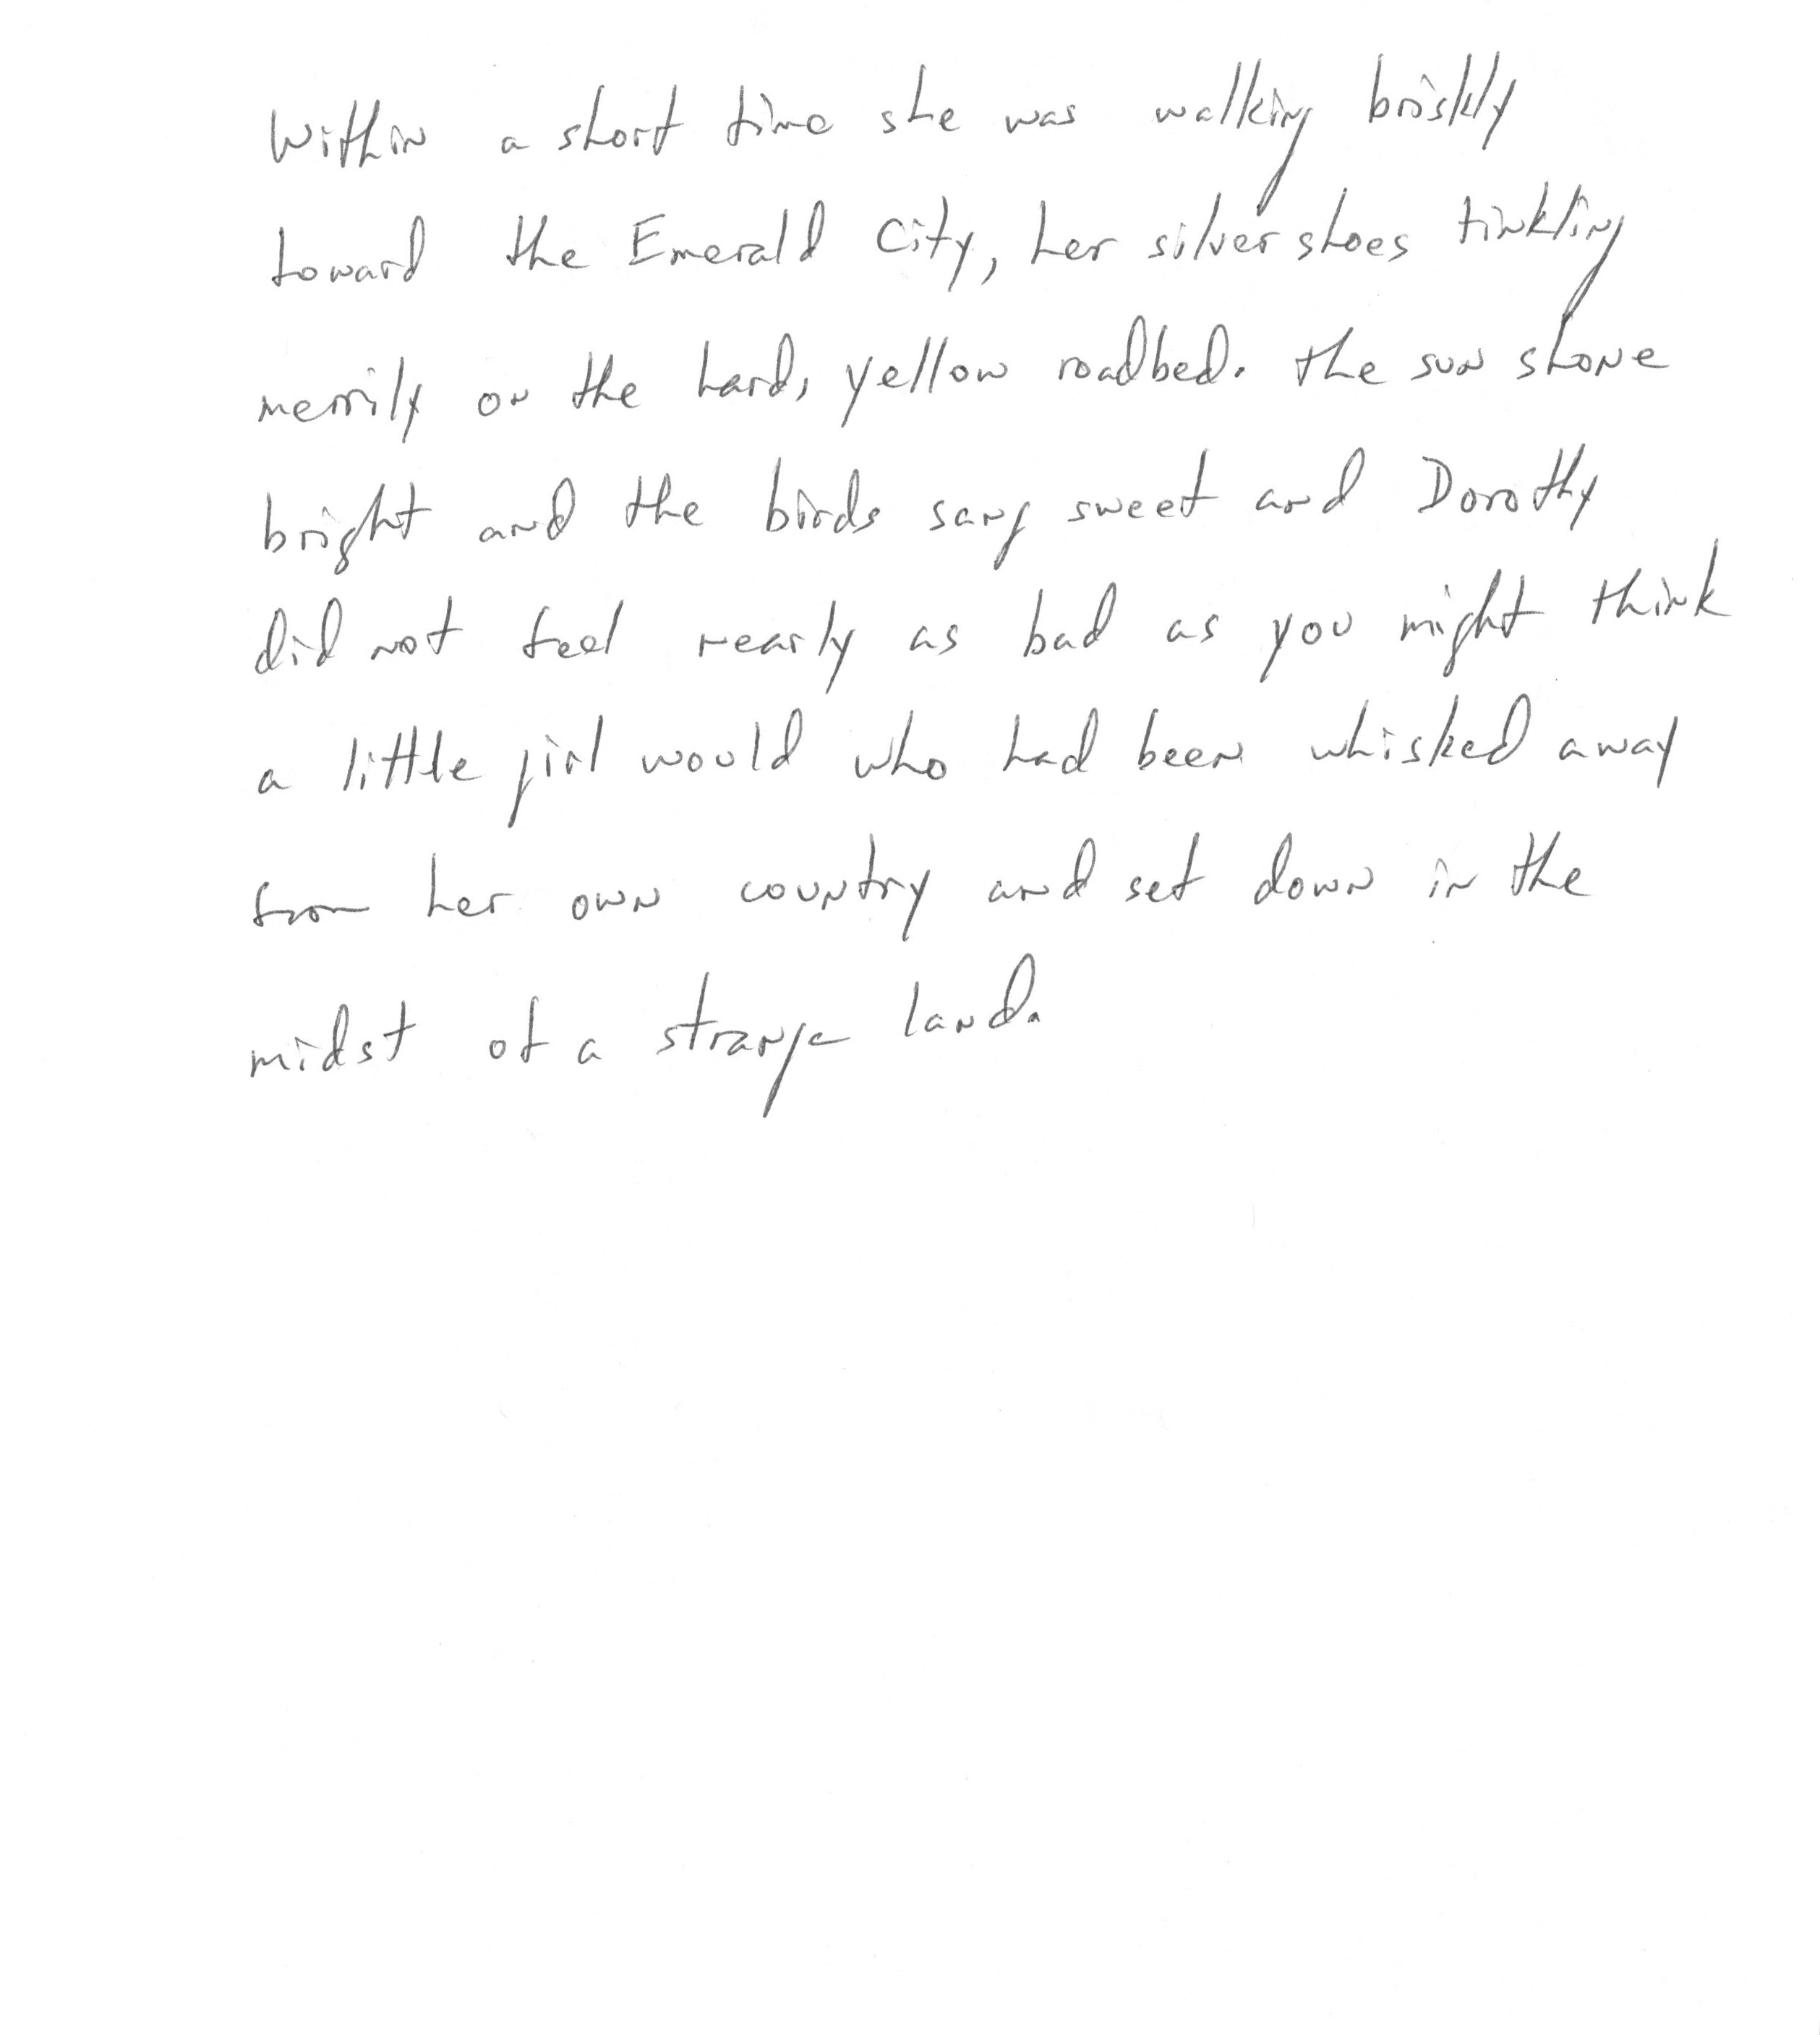 Within a short time she was walking briskly
toward the Emerald City, her silver shoes tinkling
merrily on the hard, yellow roadbed. The sun shone
bright and the birds sang sweet and Dorothy
did not feel nearly as bad as you might think
a little girl would who had been whisked away
from her own country and set down in the
midst of a strange land.